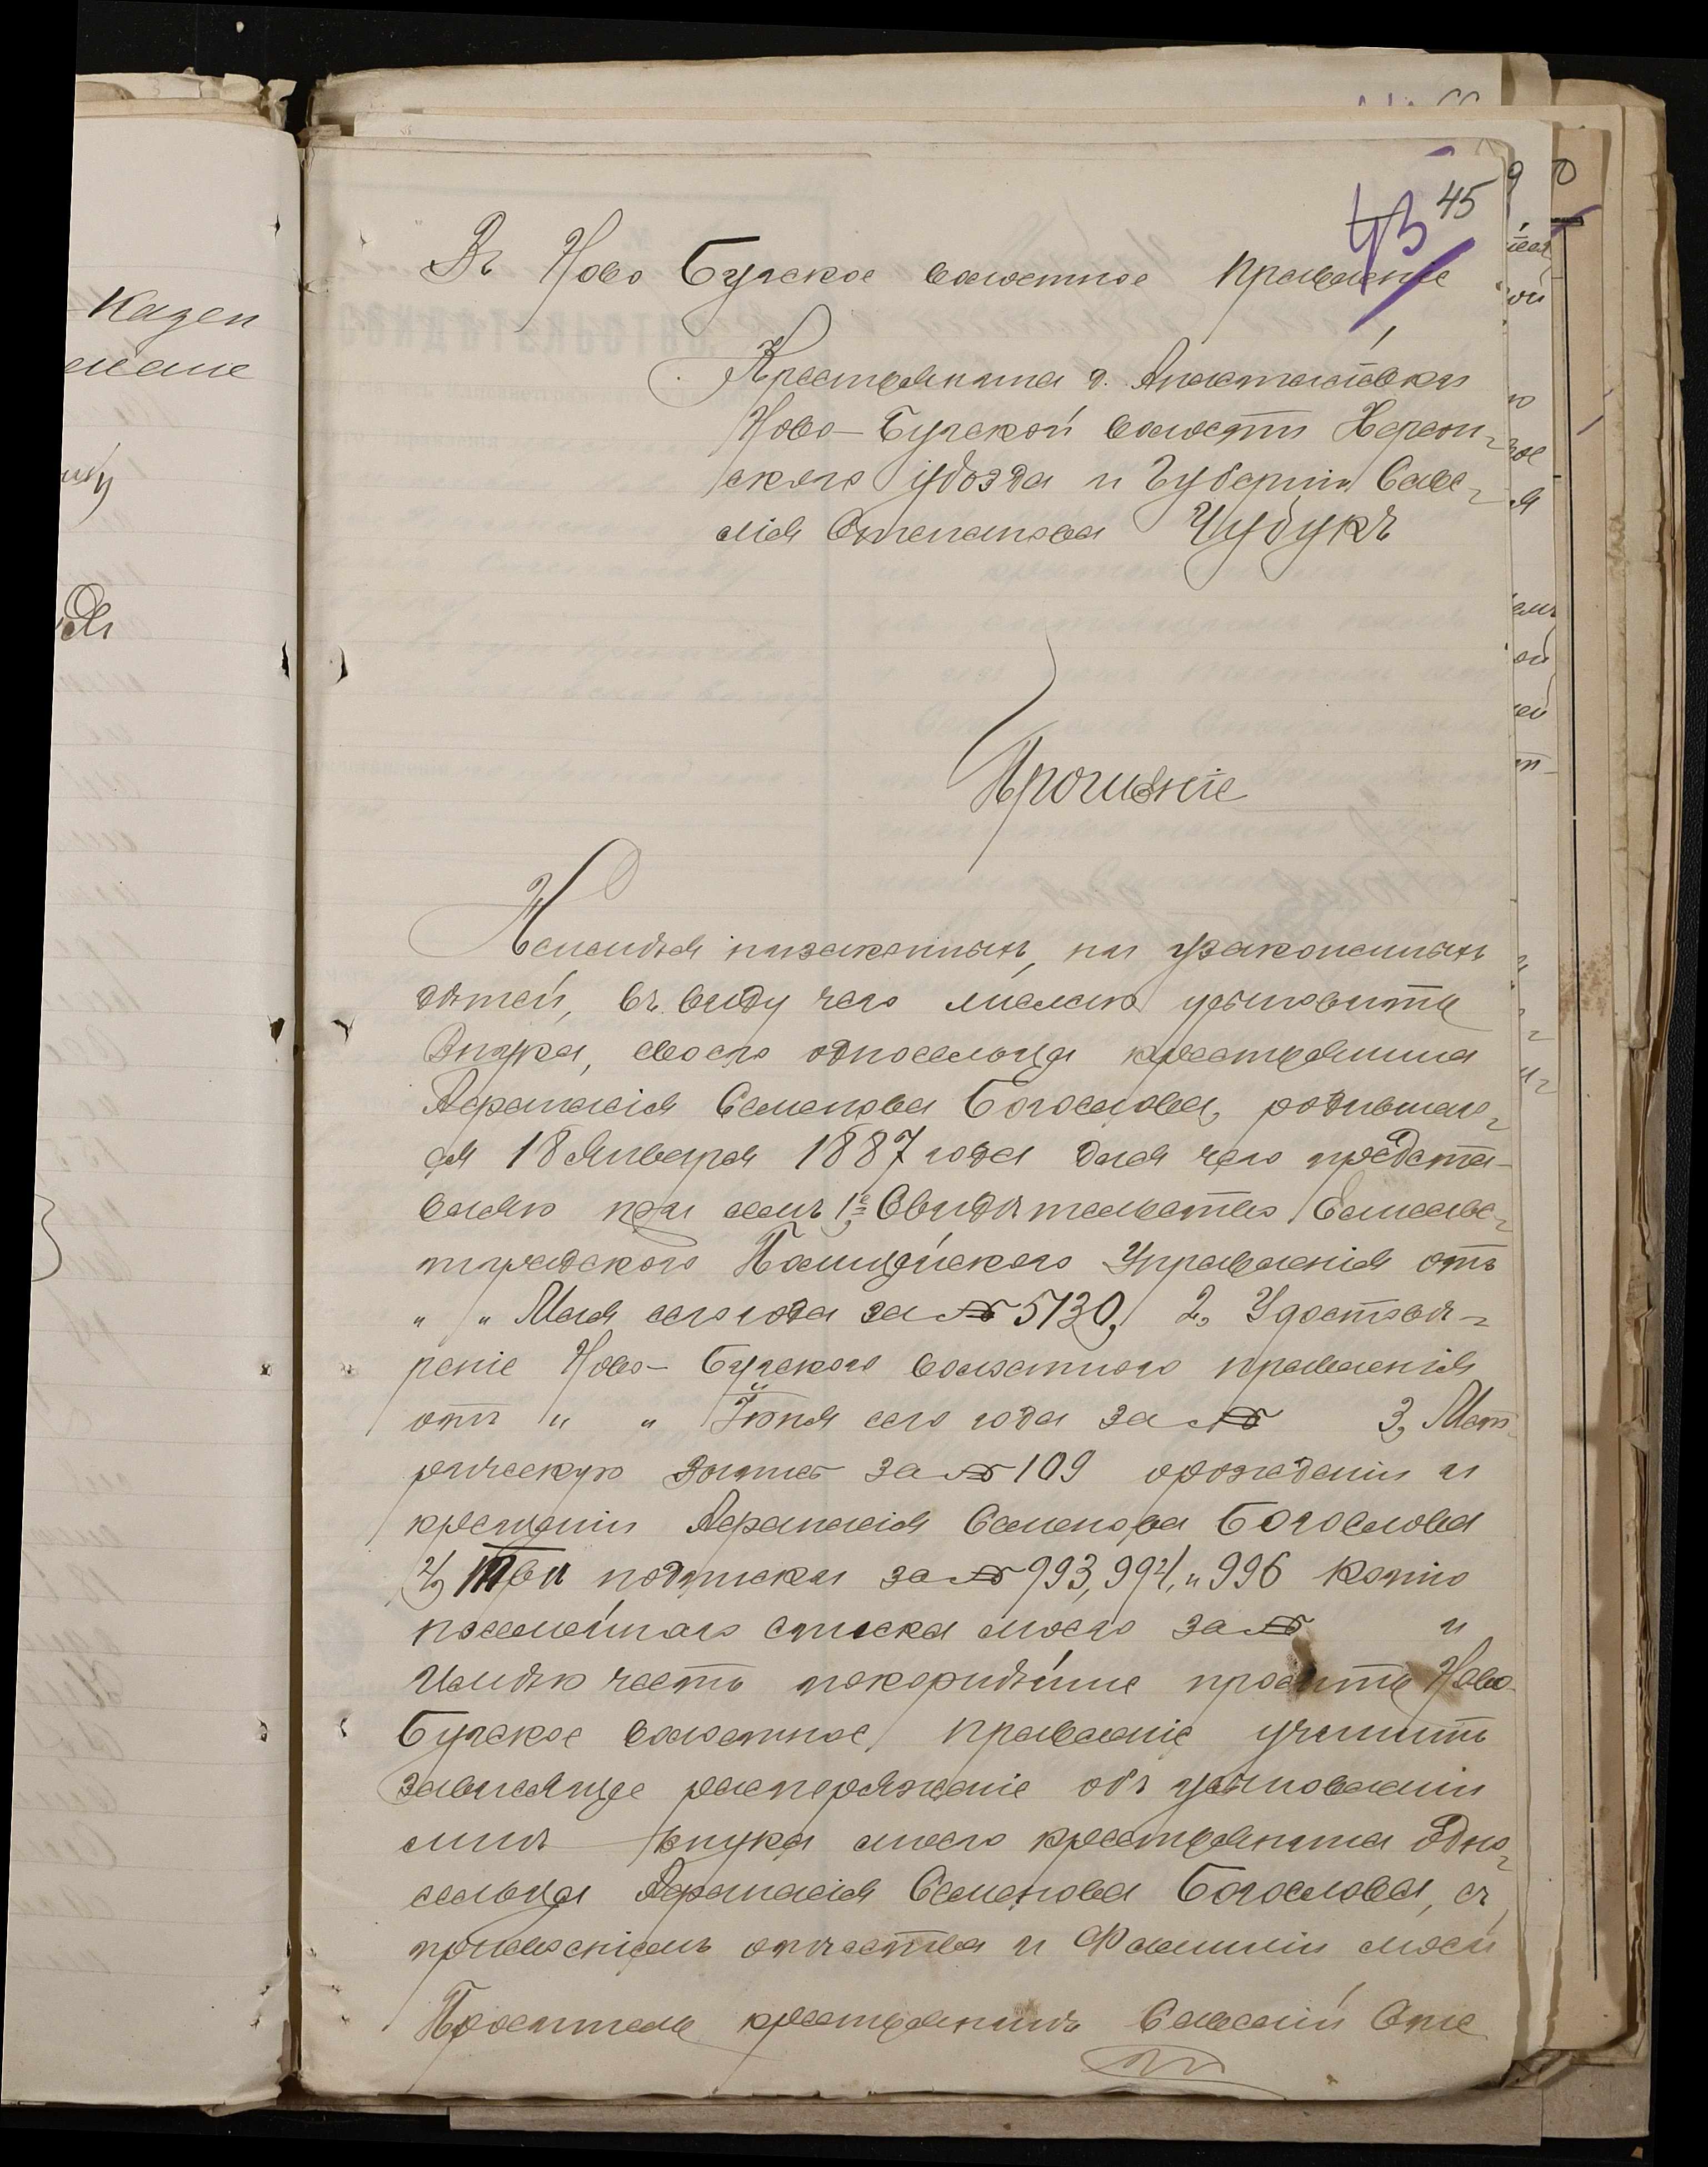 45
43
Въ Ново Бугское волостное Правленіе
Крестьянина д. Анастасіевки
Ново-Бугской волости Херсон-
скаго уѣзда и Губерніи Саве-
лія Степанова Чубукъ
Прошеніе
Неимѣя низаконныхъ, ни узаконенныхъ
дѣтей, въ виду чего желаю усыновить
Внука, своего односельца крестьянина
Афанасія Семенова Богослова, родившаго-
ся 18 Января 1887 года для чего предста-
вляю при семъ 1е, Свидѣтельство Елисаве-
тградского Полицейского Управленія отъ
„ „ Мая сего года за № 5130, 2, Удостовѣ-
реніе Ново-Бугского волостного правленія
отъ „ „ Іюня сего года за № 3, Мет-
рическую за № 109 орожденіи и
крещеніи Афанасія Семенова Богослова
4, Три подписки за № 993, 994, и 996 Копію
посемейнаго списка моего за № и
Имѣю честь покорнѣйше просить Ново-
Бугское волостное, Правленіе учинить
зависящее распоряженіе объ усыновленіи
мнѣ Внука моего крестьянина Одно-
сельца Афанасія Семенова Богослова, съ
отчества и Фамиліи моей
Проситель крестьянинъ Савелій Сте
Казен